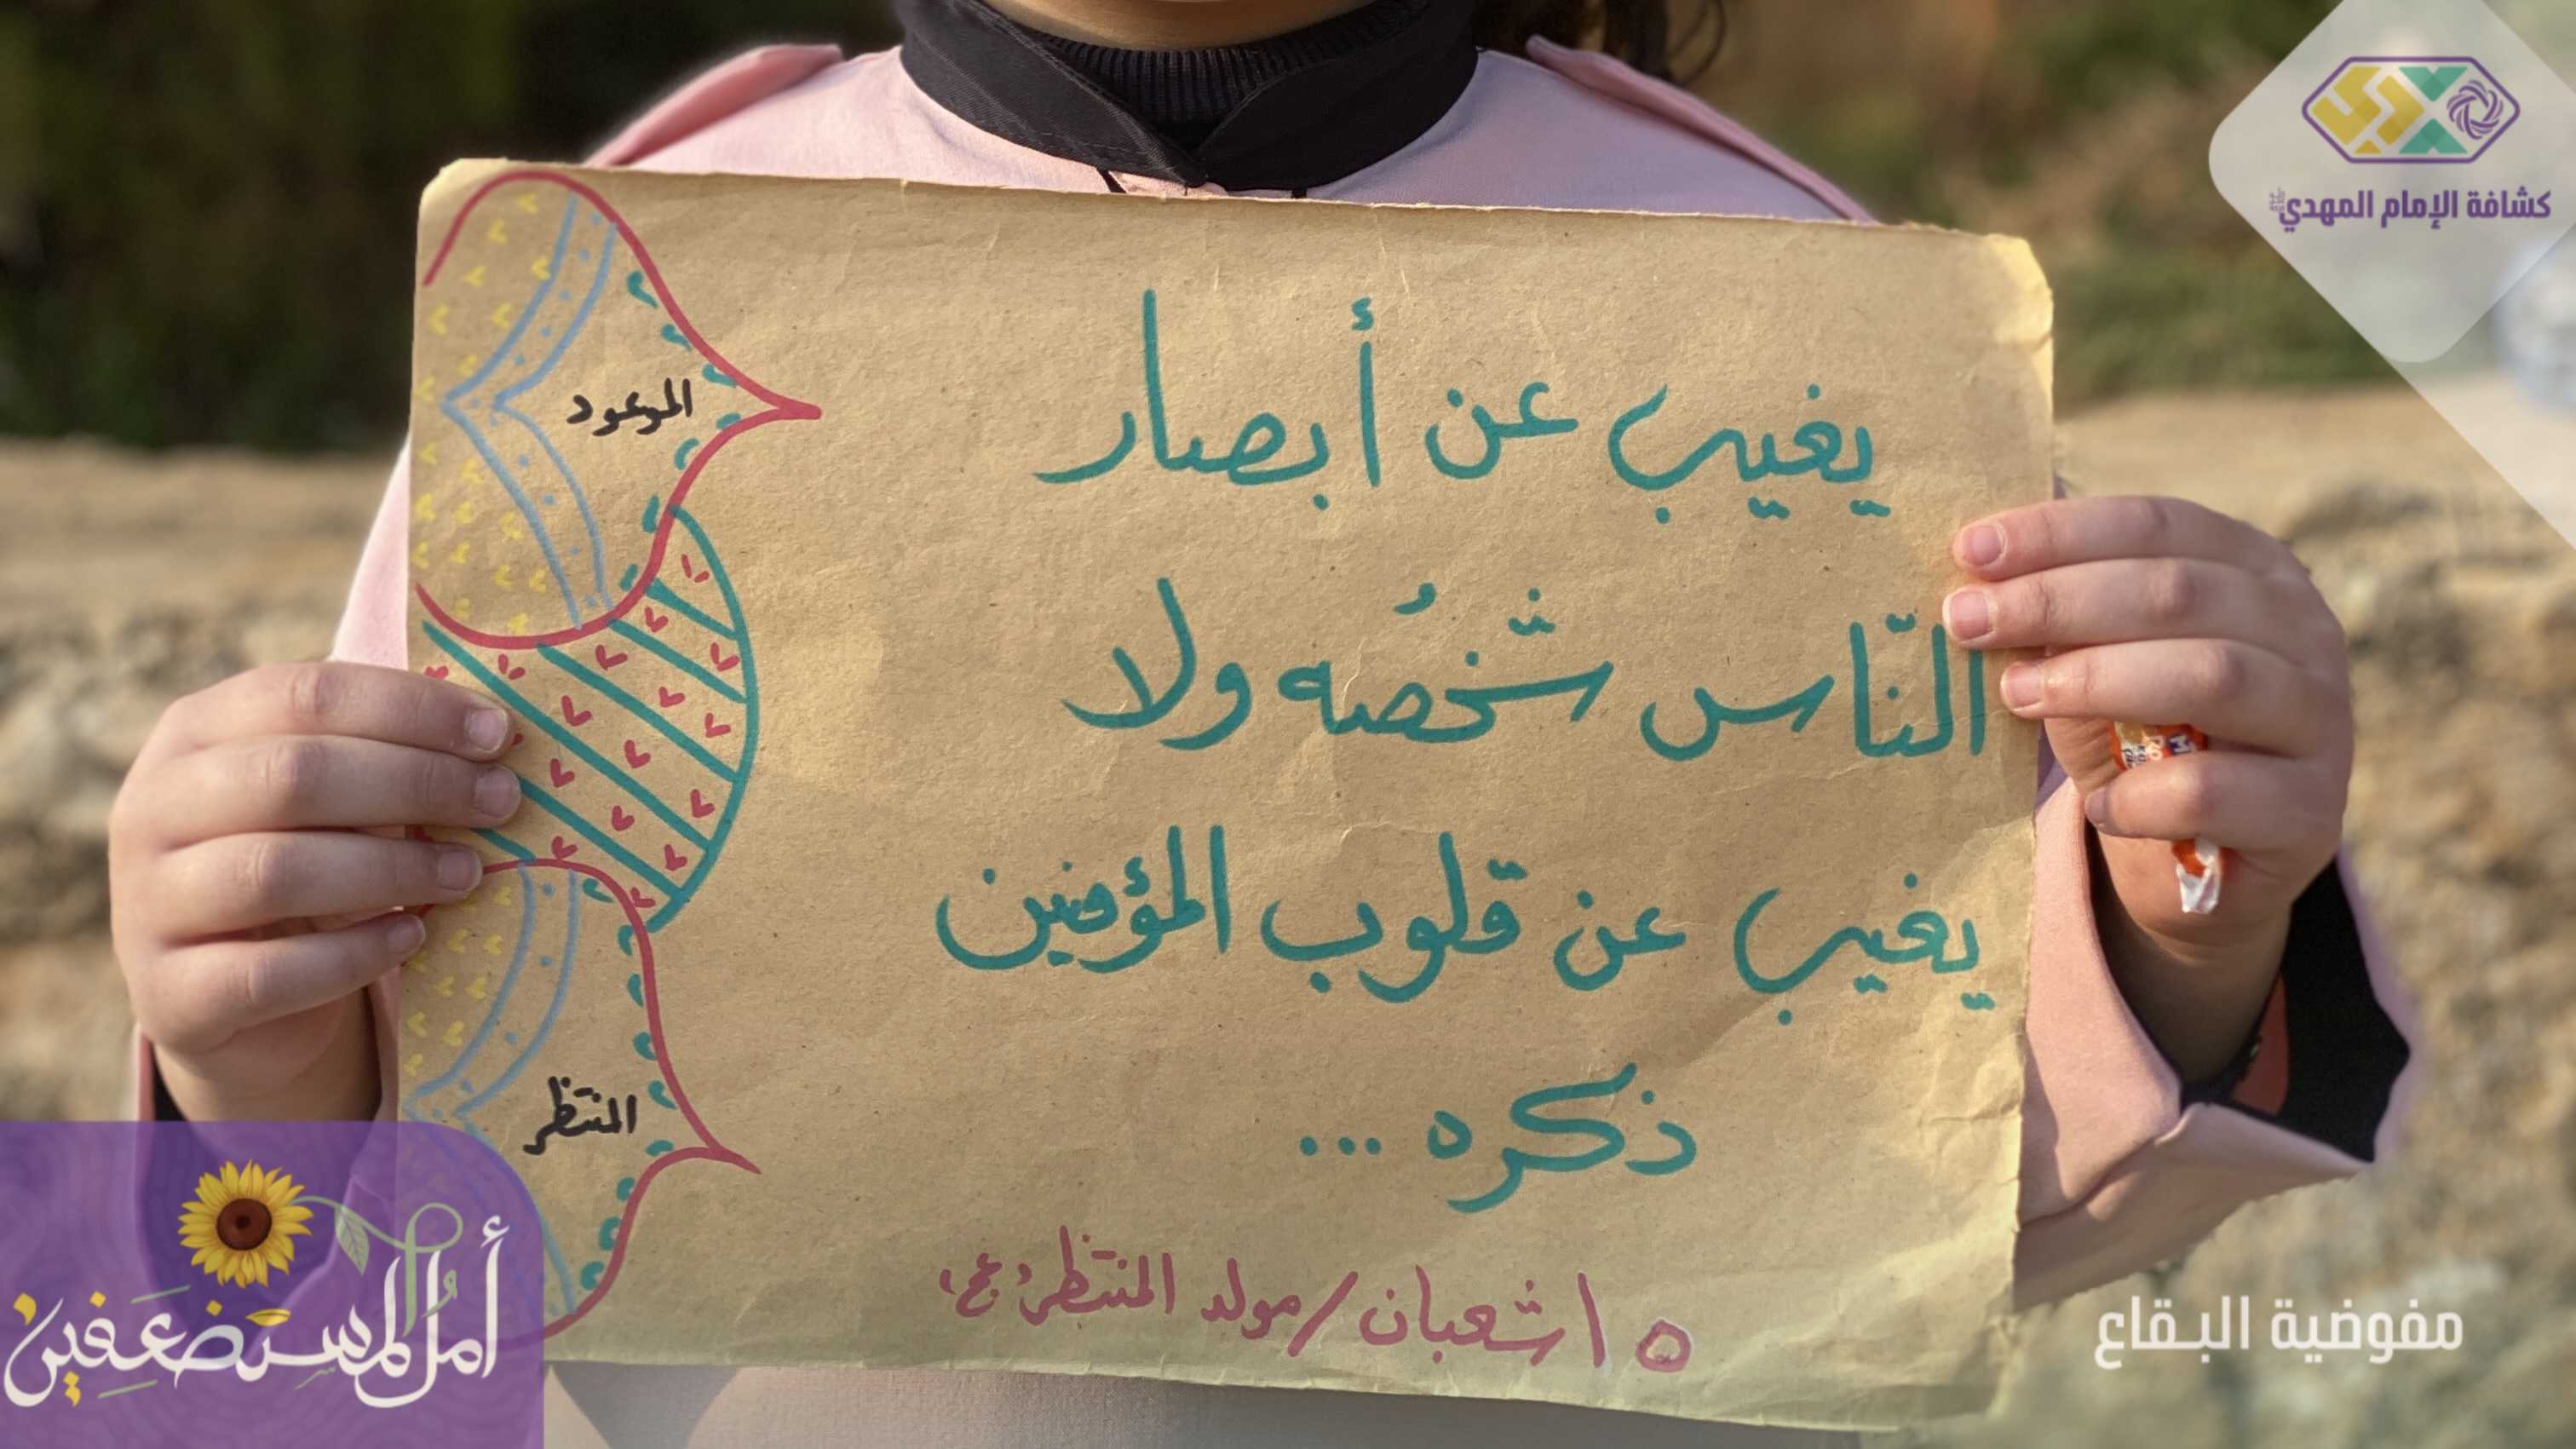 كشافة الإمام المهدي
يغيب عن أبصار
النّاس شخصُه ولا
يغيب عن قلوب المؤمنين
ذكره ...
١٥ شعبان / مولد المنتظر "عج"
الموعود
المنتظر
أملُ المستضعَفين
مفوضية البقاع